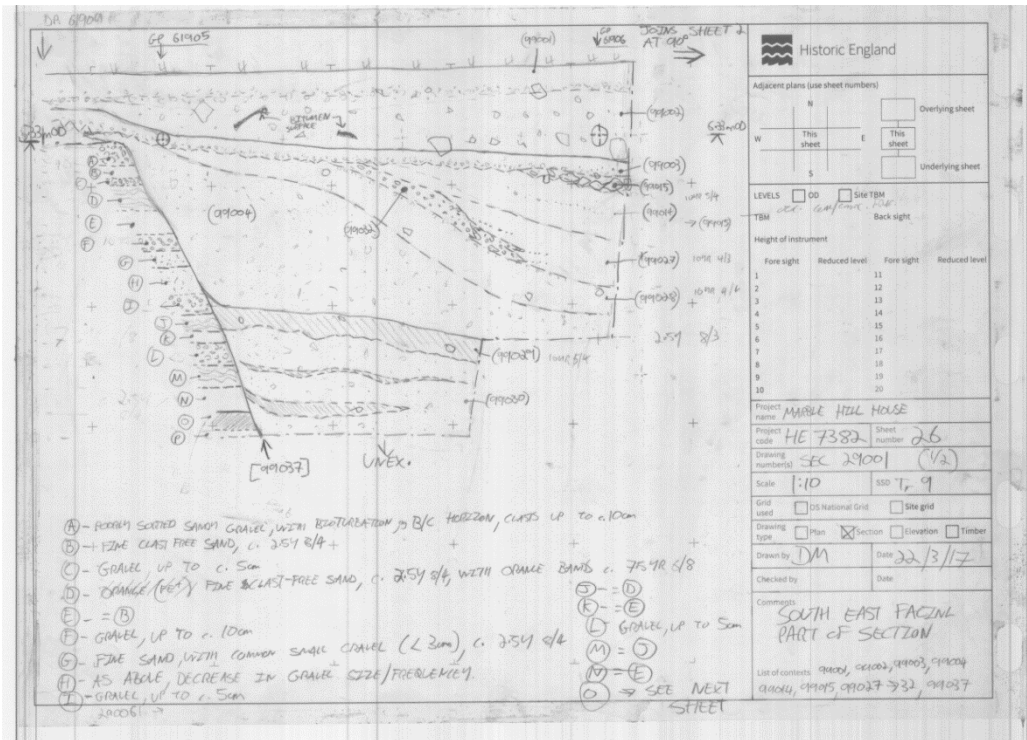 GP 61905
(99001)
JOINS SHEET 2
AT 90°
BITUMEN
SURFACE
(99002)
(99003)
(99015)
(99004)
(99032)
(99014)
(99027) 10YR 4/3
(99028) 10YR 4/6
2.5Y 8/3
(99029)
(99030)
A
B
C
D
E
F
G
H
I
J
K
L
M
N
O
P
[99037]
UNEX.
A - POORLY SORTED SANDY GRAVEL, WITH BIOTURBATION, B/C HORIZON, CLASTS UP TO c. 10cm
B - FINE CLAST FREE SAND, c. 2.5Y 8/4
C - GRAVEL, UP TO c. 5cm
D - FINE CLAST-FREE SAND, c. 2.5Y 8/4, WITH ORANGE BANDS c. 7.5YR 6/8
E - = B
F - GRAVEL, UP TO c. 10cm
G - FINE SAND, WITH COMMON SMALL GRAVEL (< 3cm), c. 2.5Y 8/4
H - AS ABOVE, DECREASE IN GRAVEL SIZE/FREQUENCY.
I - GRAVEL, UP TO c. 5cm
J - = D
K - = E
L GRAVEL, UP TO 5cm
M = J
N = E
O → SEE NEXT
SHEET
Historic England
Adjacent plans (use sheet numbers)
N
W
This
sheet
E
S
Overlying sheet
This
sheet
Underlying sheet
LEVELS OD Site TBM
TBM Back sight
Height of instrument
Fore sight Reduced level Fore sight Reduced level
1 11
2 12
3 13
4 14
5 15
6 16
7 17
8 18
9 19
10 20
Project
name MARBLE HILL HOUSE
Project
code HE 7382
Sheet
number 26
Drawing
number(s) SEC 29001 (1/2)
Scale 1:10 SSD Tr 9
Grid
used OS National Grid Site grid
Drawing
type Plan Section Elevation Timber
Drawn by DM Date 22/3/17
Checked by Date
Comments
SOUTH EAST FACING
PART OF SECTION
List of contexts 99001, 99002, 99003, 99004
99014, 99015, 99027 → 32, 99037